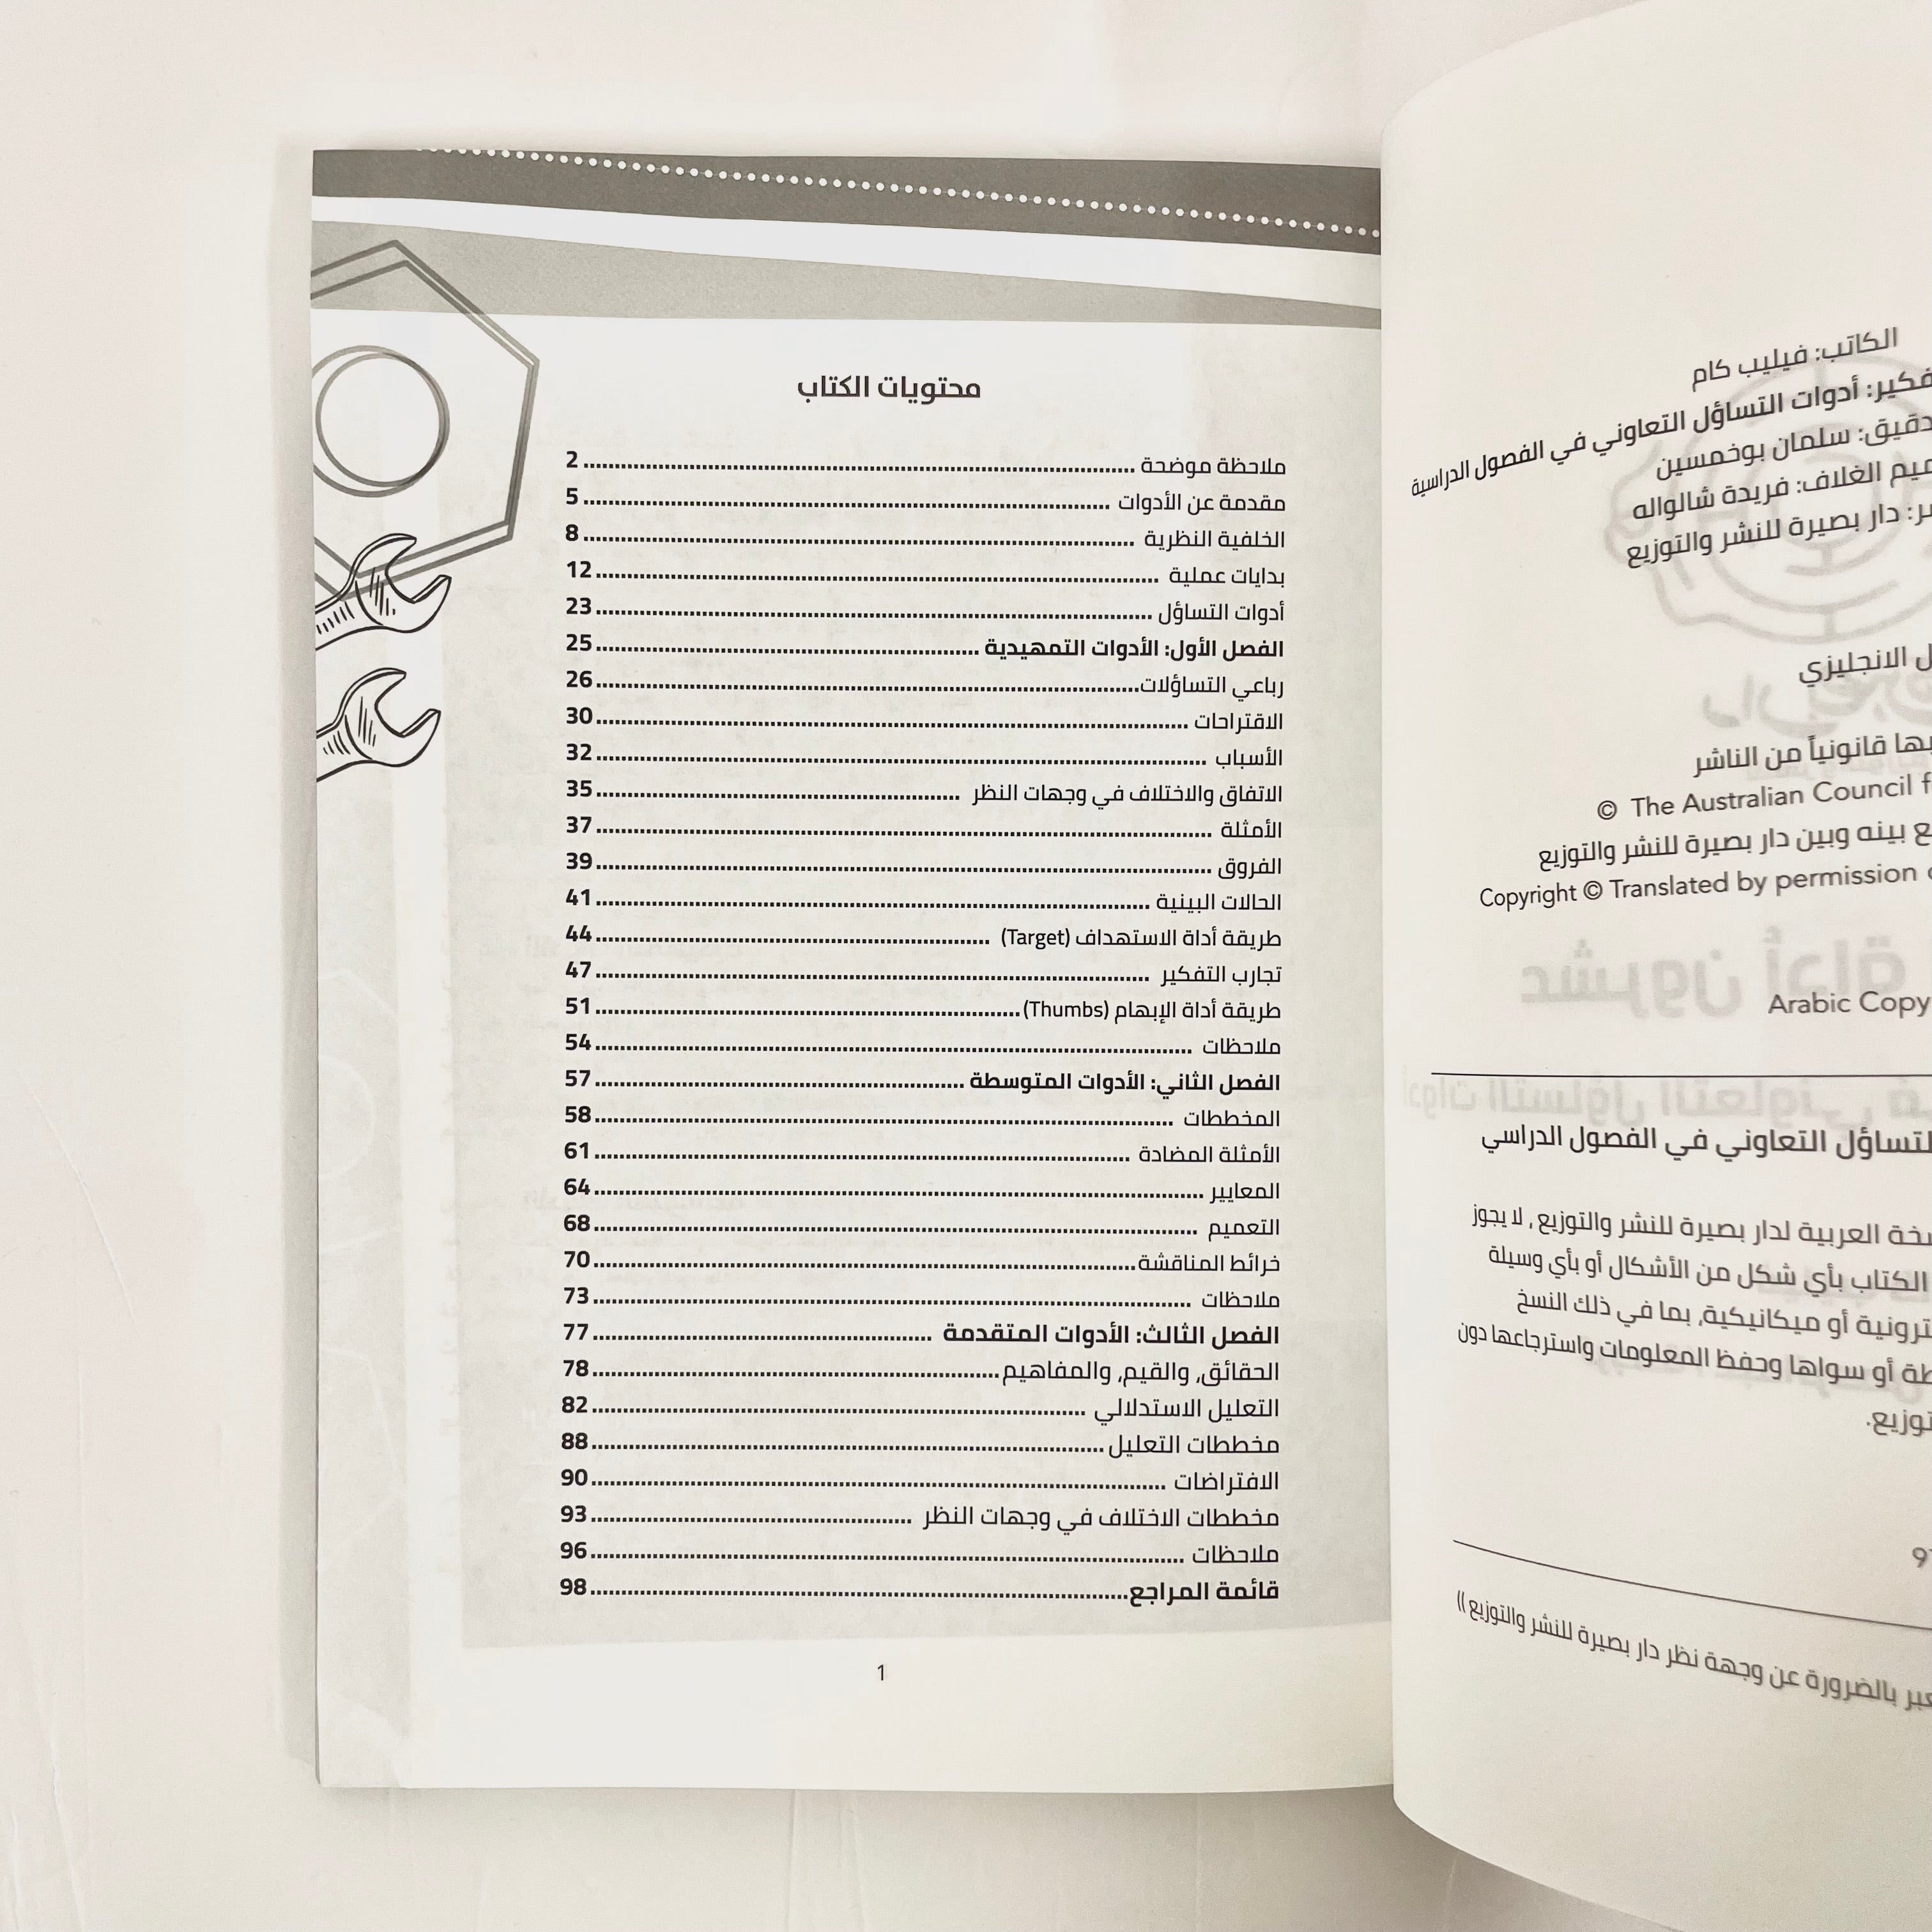 الكاتب: فيليب كام
أدوات التساؤل التعاوني في الفصول الدراسية
سلمان بوخمسين
الغلاف: فريدة شالواله
دار بصيرة للنشر والتوزيع
الانجليزي
قانونياً من الناشر
© The Australian Council
بينه وبين دار بصيرة للنشر والتوزيع
Copyright © Translated by permission
Arabic Copy
التساؤل التعاوني في الفصول الدراسي
العربية لدار بصيرة للنشر والتوزيع، لا يجوز
الكتاب بأي شكل من الأشكال أو بأي وسيلة
أو ميكانيكية، بما في ذلك النسخ
أو سواها وحفظ المعلومات واسترجاعها دون
بالضرورة عن وجهة نظر دار بصيرة للنشر والتوزيع))
محتويات الكتاب
ملاحظة موضحة ........ 2
مقدمة عن الأدوات ........ 5
الخلفية النظرية ........ 8
بدايات عملية ........ 12
أدوات التساؤل ........ 23
الفصل الأول: الأدوات التمهيدية ........ 25
رباعي التساؤلات ........ 26
الاقتراحات ........ 30
الأسباب ........ 32
الاتفاق والاختلاف في وجهات النظر ........ 35
الأمثلة ........ 37
الفروق ........ 39
الحالات البينية ........ 41
طريقة أداة الاستهداف (Target) ........ 44
تجارب التفكير ........ 47
طريقة أداة الإبهام (Thumbs) ........ 51
ملاحظات ........ 54
الفصل الثاني: الأدوات المتوسطة ........ 57
المخططات ........ 58
الأمثلة المضادة ........ 61
المعايير ........ 64
التعميم ........ 68
خرائط المناقشة ........ 70
ملاحظات ........ 73
الفصل الثالث: الأدوات المتقدمة ........ 77
الحقائق، والقيم، والمفاهيم ........ 78
التعليل الاستدلالي ........ 82
مخططات التعليل ........ 88
الافتراضات ........ 90
مخططات الاختلاف في وجهات النظر ........ 93
ملاحظات ........ 96
قائمة المراجع ........ 98
1